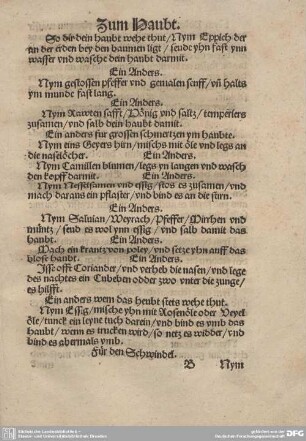 Zum Haubt.
So dir dein haubt wehe thut/ Nym Eppich der
an der erden bey den baumen ligt/ seudt yhn fast ynn
wasser vnd wasche dein haubt darmit.
Ein Anders.
Nym gestossen pfeffer vnd gemalen senff/ vñ halts
ym munde fast lang.
Ein Anders.
Nym Rawten safft/ Hönig vnd saltz/ temperiers
zusamen/ vnd salb dein haubt damit.
Ein anders für grossen schmertzen ym haubte.
Nym eins Geyers hirn/ mischs mit öle vnd legs an
die naslöcher. Ein Anders.
Nym Camillen blumen/ legs yn laugen vnd wasch
den kopff darmit. Ein Anders.
Nym Nesselsamen vnd essig/ stos es zusamen/ vnd
mach daraus ein pflaster/ vnd bind es an die stirn.
Ein Anders.
Nym Saluian/ Weyrach/ Pfeffer/ Mirrhen vnd
müntz/ seud es wol ynn essig/ vnd salb damit das
haubt. Ein Anders.
Mach ein krantz von poley/ vnd setze yhn auff das
blosß haubt. Ein Anders.
Isse offt Coriander/ vnd verheb die nasen/ vnd lege
des nachtes ein Cubeben odder zwo vnter die zunge/
es hilfft.
Ein anders wem das heubt stets wehe thut.
Nym Essig/ mische yhn mit Rosenöle oder Veyel
öle/ tunck ein leyne tuch darein/ vnd bind es ymb das
haubt/ wenn es trucken wird/ so netz es widder/ vnd
bind es abermals ymb.
Für den Schwindel.
B Nym